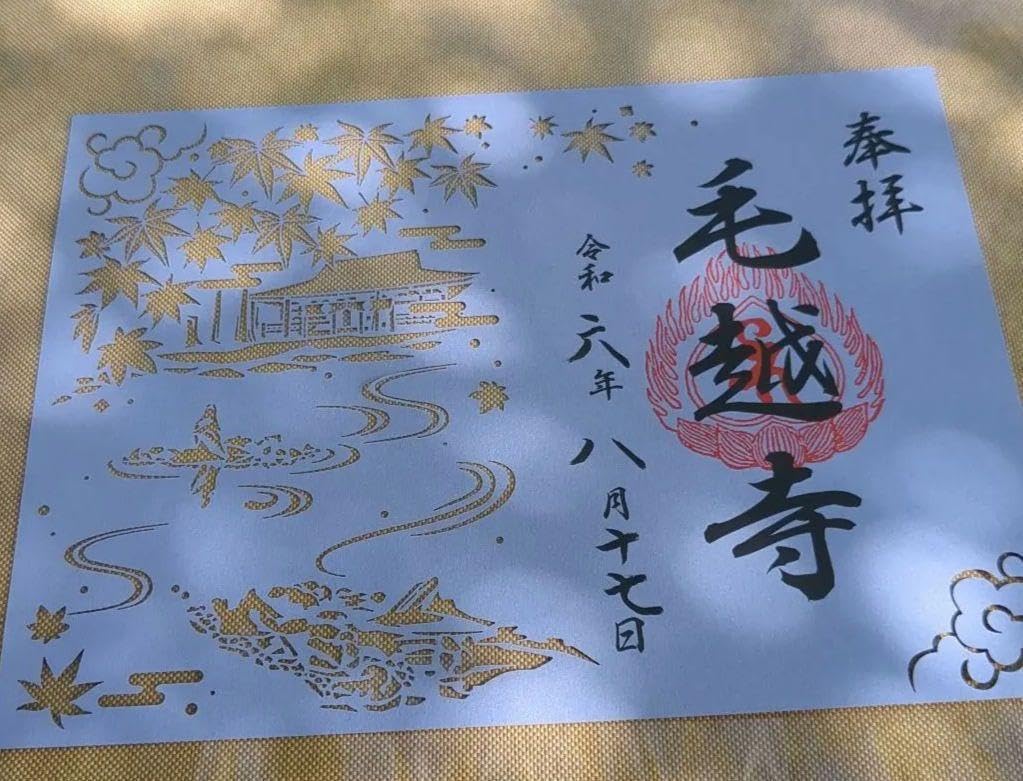 奉拝
毛越寺
令和六年八月十七日